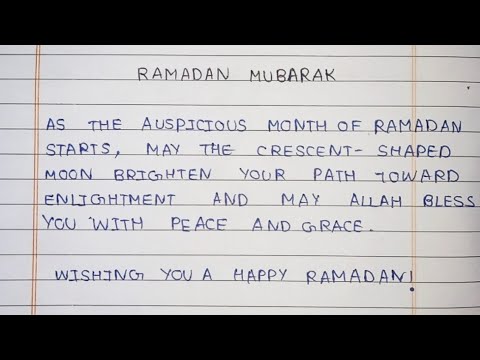 RAMADAN MUBARAK
AS THE AUSPICIOUS MONTH OF RAMADAN
STARTS, MAY THE CRESCENT-SHAPED
MOON BRIGHTEN YOUR PATH TOWARD
ENLIGHTMENT AND MAY ALLAH BLESS
YOU WITH PEACE AND GRACE.
WISHING YOU A HAPPY RAMADAN!